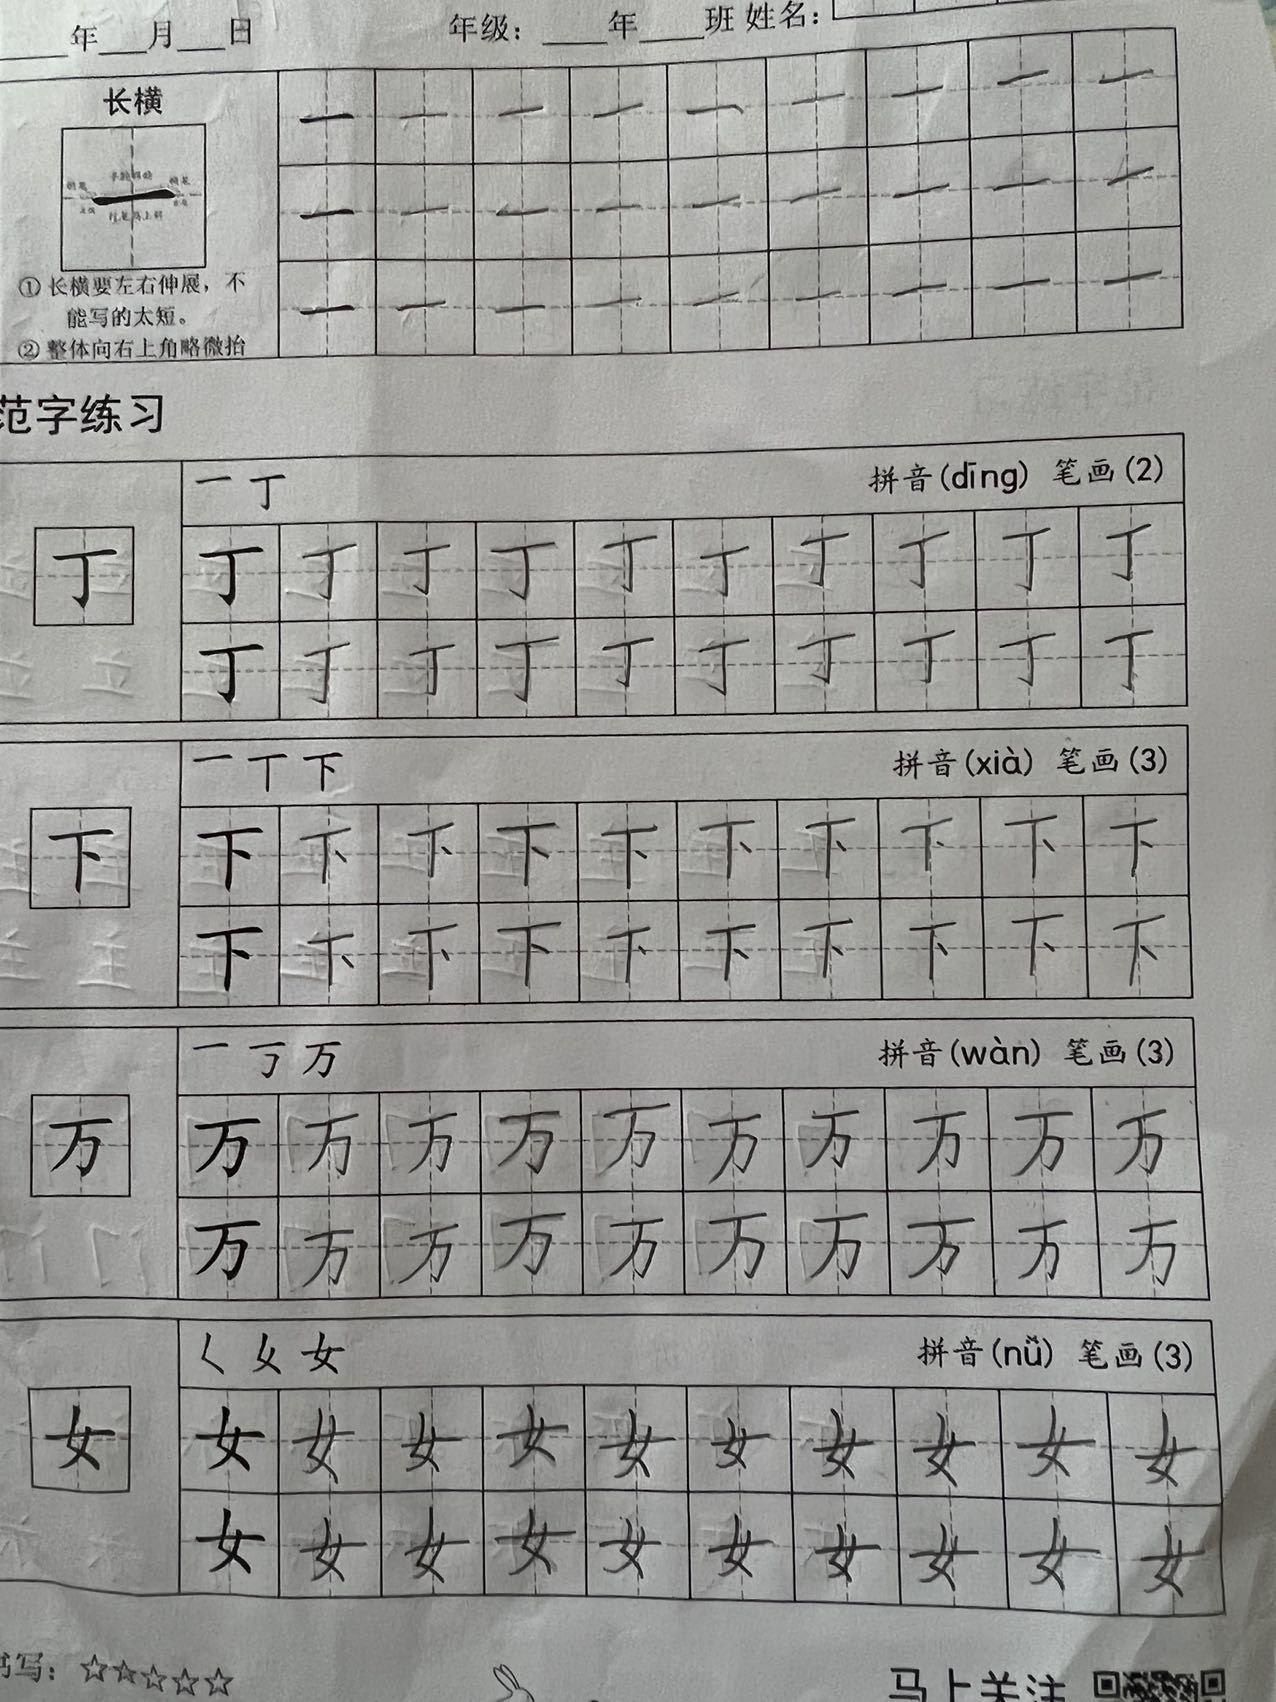 年 月 日 年级： 年 班 姓名：
长横
① 长横要左右伸展，不
能写的太短。
② 整体向右上角略微抬
范字练习
一 丁 拼音(dīng) 笔画(2)
丁 丁 丁 丁 丁 丁 丁 丁 丁 丁 丁
丁 丁 丁 丁 丁 丁 丁 丁 丁 丁
一 丅 下 拼音(xià) 笔画(3)
下 下 下 下 下 下 下 下 下 下 下
下 下 下 下 下 下 下 下 下 下
一 丂 万 拼音(wàn) 笔画(3)
万 万 万 万 万 万 万 万 万 万 万
万 万 万 万 万 万 万 万 万 万
㇛ 女 拼音(nǚ) 笔画(3)
女 女 女 女 女 女 女 女 女 女 女
女 女 女 女 女 女 女 女 女 女
书写：☆☆☆☆☆ 马上关注